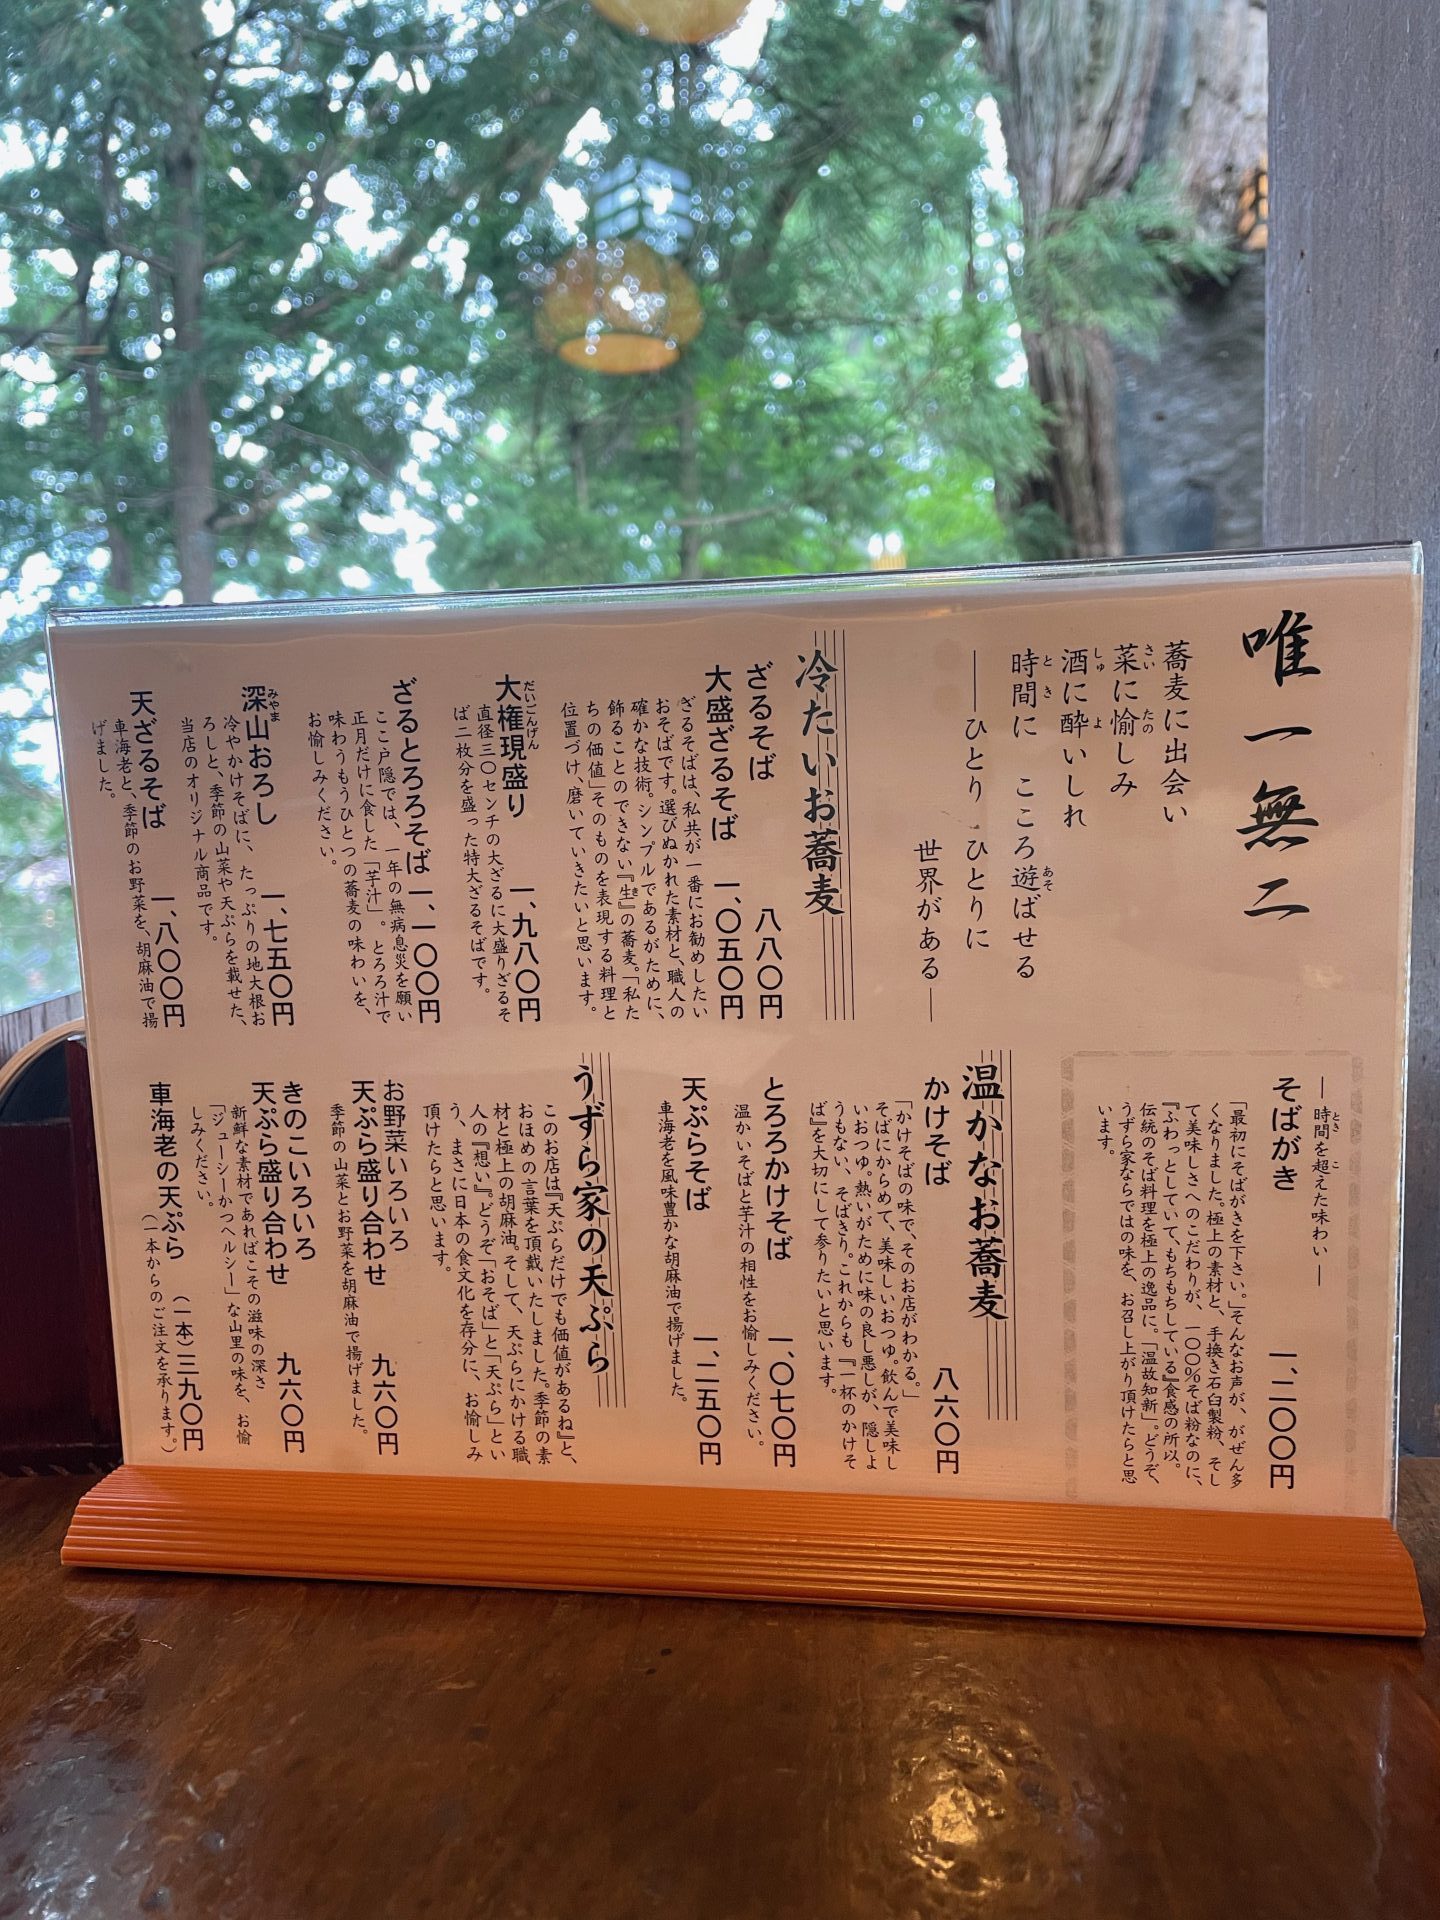 唯一無二
蕎麦に出会い
菜に愉しみ
酒に酔いしれ
時間に こころ遊ばせる
―ひとり ひとりに
世界がある―
冷たいお蕎麦
ざるそば 八八〇円
大盛ざるそば 一、〇五〇円
ざるそばは、私共が一番にお勧めしたい
おそばです。選びぬかれた素材と、職人の
確かな技術。シンプルであるがために、
飾ることのできない『生』の蕎麦。「私た
ちの価値」そのものを表現する料理と
位置づけ、磨いていきたいと思います。
大権現盛り 一、九八〇円
直径三〇センチの大ざるに大盛りざるそ
ば二枚分を盛った特大ざるそばです。
ざるとろろそば 一、一〇〇円
ここ戸隠では、一年の無病息災を願い
正月だけに食した「芋汁」。とろろ汁で
味わうもうひとつの蕎麦の味わいを、
お愉しみください。
深山おろし 一、七五〇円
冷やかけそばに、たっぷりの地大根お
ろしと、季節の山菜や天ぷらを載せた、
当店のオリジナル商品です。
天ざるそば 一、八〇〇円
車海老と、季節のお野菜を、胡麻油で揚
げました。
―時間を超えた味わい―
そばがき 一、二〇〇円
「最初にそばがきを下さい。」そんなお声が、がぜん多
くなりました。極上の素材と、手挽き石臼製粉、そし
て美味しさへのこだわりが、一〇〇％そば粉なのに、
『ふわっとしていて、もちもちしている』食感の所以。
伝統のそば料理を極上の逸品に。「温故知新」。どうぞ、
うずら家ならではの味を、お召し上がり頂けたらと思
います。
温かなお蕎麦
かけそば 八六〇円
「かけそばの味で、そのお店がわかる。」
そばにからめて、美味しいおつゆ。飲んで美味し
いおつゆ。熱いがために味の良し悪しが、隠しよ
うもない、そばぎり。これからも『一杯のかけそ
ば』を大切にして参りたいと思います。
とろろかけそば 一、〇七〇円
温かいそばと芋汁の相性をお愉しみください。
天ぷらそば 一、二五〇円
車海老を風味豊かな胡麻油で揚げました。
うずら家の天ぷら
このお店は『天ぷらだけでも価値があるね』と、
おほめの言葉を頂戴いたしました。季節の素
材と極上の胡麻油。そして、天ぷらにかける職
人の『想い』。どうぞ「おそば」と「天ぷら」とい
う、まさに日本の食文化を存分に、お愉しみ
頂けたらと思います。
お野菜いろいろ
天ぷら盛り合わせ 九六〇円
季節の山菜とお野菜を胡麻油で揚げました。
きのこいろいろ
天ぷら盛り合わせ 九六〇円
新鮮な素材であればこその滋味の深さ
「ジューシーかつヘルシー」な山里の味を、お愉
しみください。
車海老の天ぷら (一本)三九〇円
(一本からのご注文を承ります。)